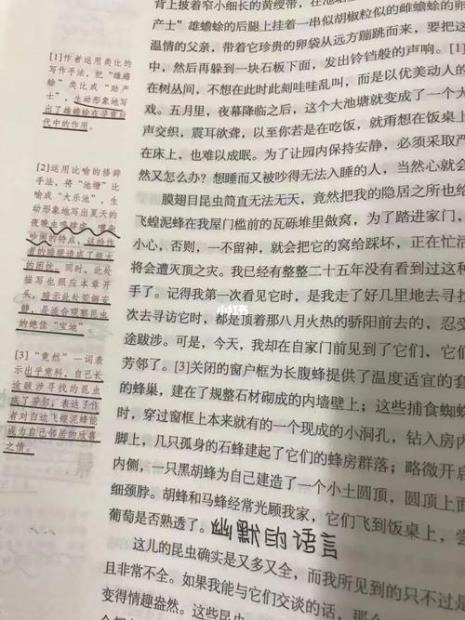 背上披着窄小细长的黄绶带，在池
产士”雄蟾蜍的后腿上挂着一串似胡椒粒似的雌蟾蜍的卵
温情的父亲，带着它珍贵的卵袋从远方蹦跳而来，要把这
中，然后再躲到一块石板下面，发出铃铛般的声响。[1]
在树丛间，不想在此时此刻哇哇乱叫，而是以优美动人的
戏。五月里，夜幕降临之后，这个大池塘就变成了一个大
声交织，震耳欲聋，以至你若是在吃饭，就甭想在饭桌上
在床上，也难以成眠。为了让园内保持安静，必须采取严
然又怎么办？想睡而又被吵得无法入睡的人，当然心就会
膜翅目昆虫简直无法无天，竟然把我的隐居之所也给
飞蝗泥蜂在我屋门槛前的瓦砾堆里做窝，为了踏进家门，
小心，否则，一不留神，就会把它的窝给踩坏，正在忙活
将会遭灭顶之灾。我已经有整整二十五年没有看到过这种
手了。记得我第一次看见它时，是我走了好几里地去寻找
次去寻访它时，都是顶着那八月火热的骄阳前去的，忍受
途跋涉。可是，今天，我却在自家门前见到了它们，它们
芳邻了。[3]关闭的窗户框为长腹蜂提供了温度适宜的套
的蜂巢，建在了规整石材砌成的内墙壁上；这些捕食蜘蛛
时，穿过窗框上本来就有的一个现成的小洞孔，钻入房内
脚上，几只孤身的石蜂建起了它们的蜂房群落；略微开启
内侧，一只黑胡蜂为自己建造了一个小土圆顶，圆顶上面
细颈脖。胡蜂和马蜂经常光顾我家，它们飞到饭桌上，尝
葡萄是否熟透了。幽默的语言
这儿的昆虫确实是又多又全，而我所见到的只不过是
且非常不全。如果我能与它们交谈的话，那么
变得情趣盎然。这些昆虫
[1]作者运用类比的
写作手法，把“雄蟾
蜍”类比成“助产
士”，生动形象地写
出了雄蟾蜍在孕育后
代中的作用。
[2]运用比喻的修辞
手法，将“池塘”比
喻成“大乐池”，生
动形象地写出夏天的
同时，此处
描写也照应本章开
头，
[3]“竟然”一词表
示出乎意料，自己长
途跋涉寻找的昆虫
成了芳邻，表达了作
者对白边飞蝗泥蜂能
成为自己邻居的欣喜
之情。
小红书